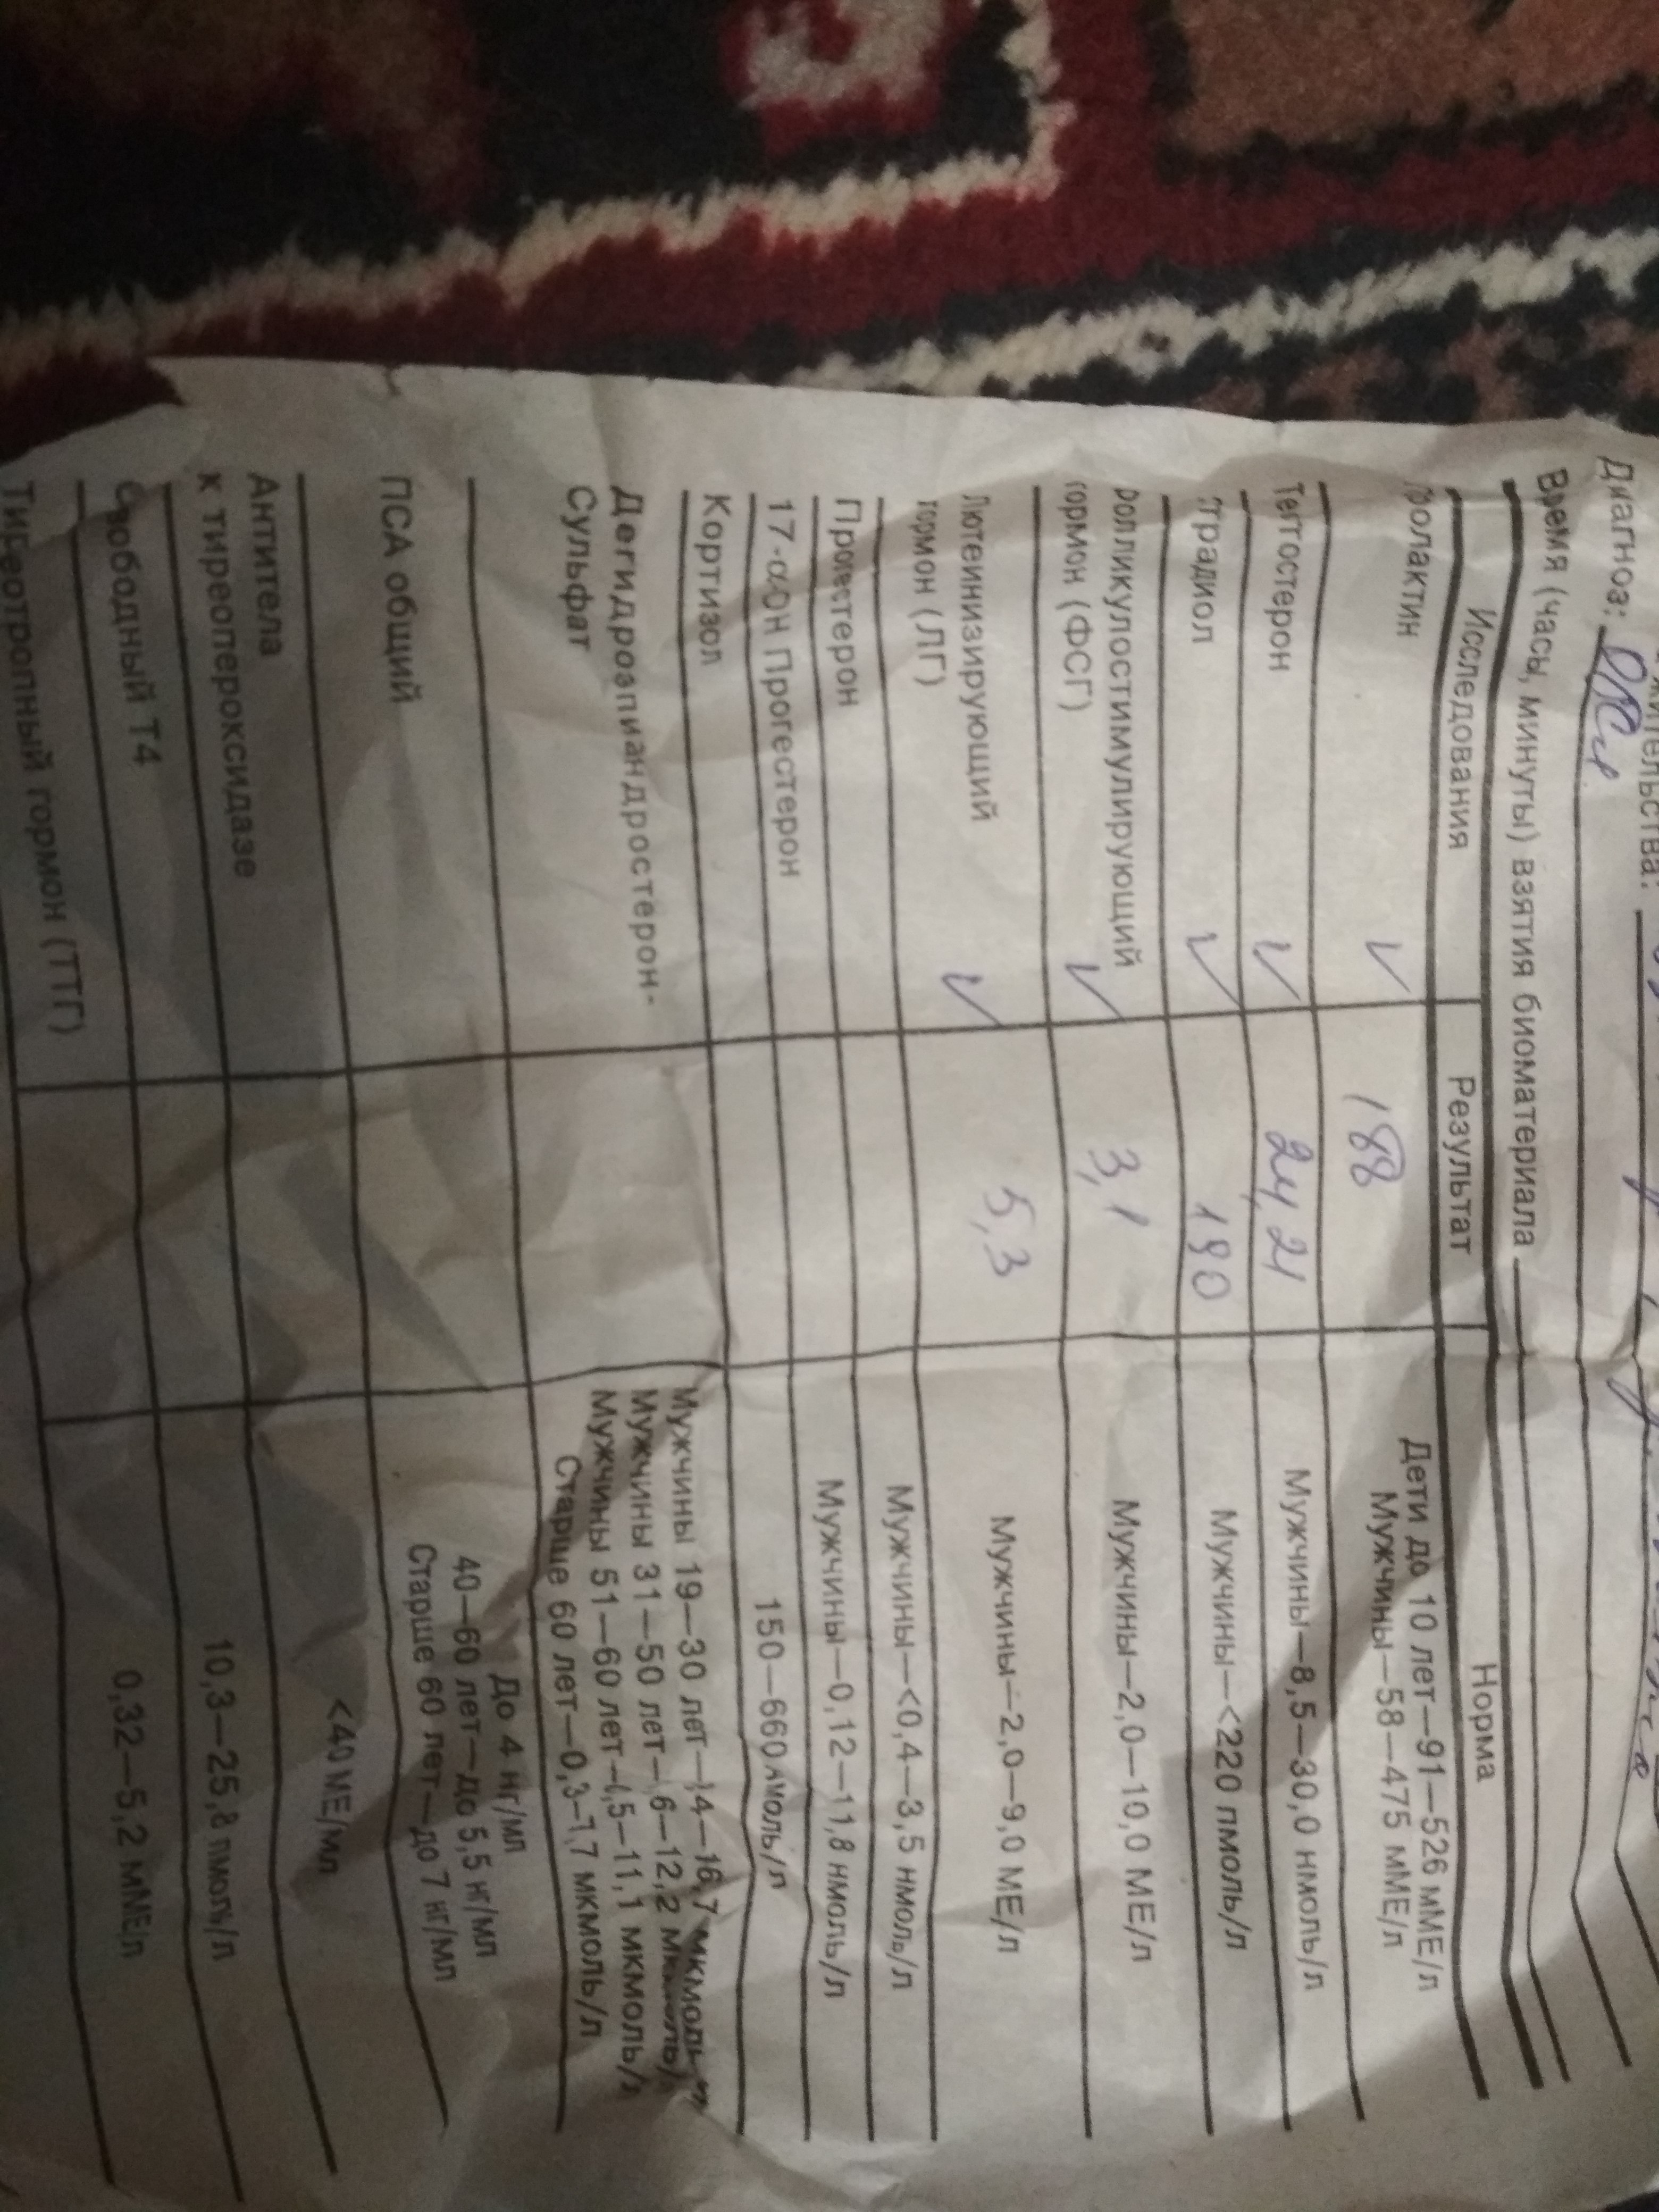 жительства:
Диагноз:
Время (часы, минуты) взятия биоматериала
Исследования Результат Норма
ролактин 188 Дети до 10 лет—91—526 мМЕ/л
Мужчины—58—475 мМЕ/л
Тестостерон 24,21 Мужчины—8,5—30,0 нмоль/л
страдиол 190 Мужчины—<220 пмоль/л
Фолликулостимулирующий
гормон (ФСГ) 3,1 Мужчины—2,0—10,0 МЕ/л
Лютеинизирующий
гормон (ЛГ) 5,3 Мужчины—2,0—9,0 МЕ/л
Прогестерон Мужчины—<0,4—3,5 нмоль/л
17-αОН Прогестерон Мужчины—0,12—11,8 нмоль/л
Кортизол 150—660 нмоль/л
Дегидроэпиандростерон-
Сульфат
Мужчины 19—30 лет—3,4—16,7 мкмоль/л
Мужчины 31—50 лет—1,6—12,2 мкмоль/л
Мужчины 51—60 лет—1,5—11,1 мкмоль/л
Старше 60 лет—0,3—7,7 мкмоль/л
ПСА общий До 4 нг/мл
40—60 лет—до 5,5 нг/мл
Старше 60 лет—до 7 нг/мл
Антитела
к тиреопероксидазе <40 МЕ/мл
Свободный Т4 10,3—25,8 пмоль/л
Тиреотропный гормон (ТТГ) 0,32—5,2 мМЕ/л